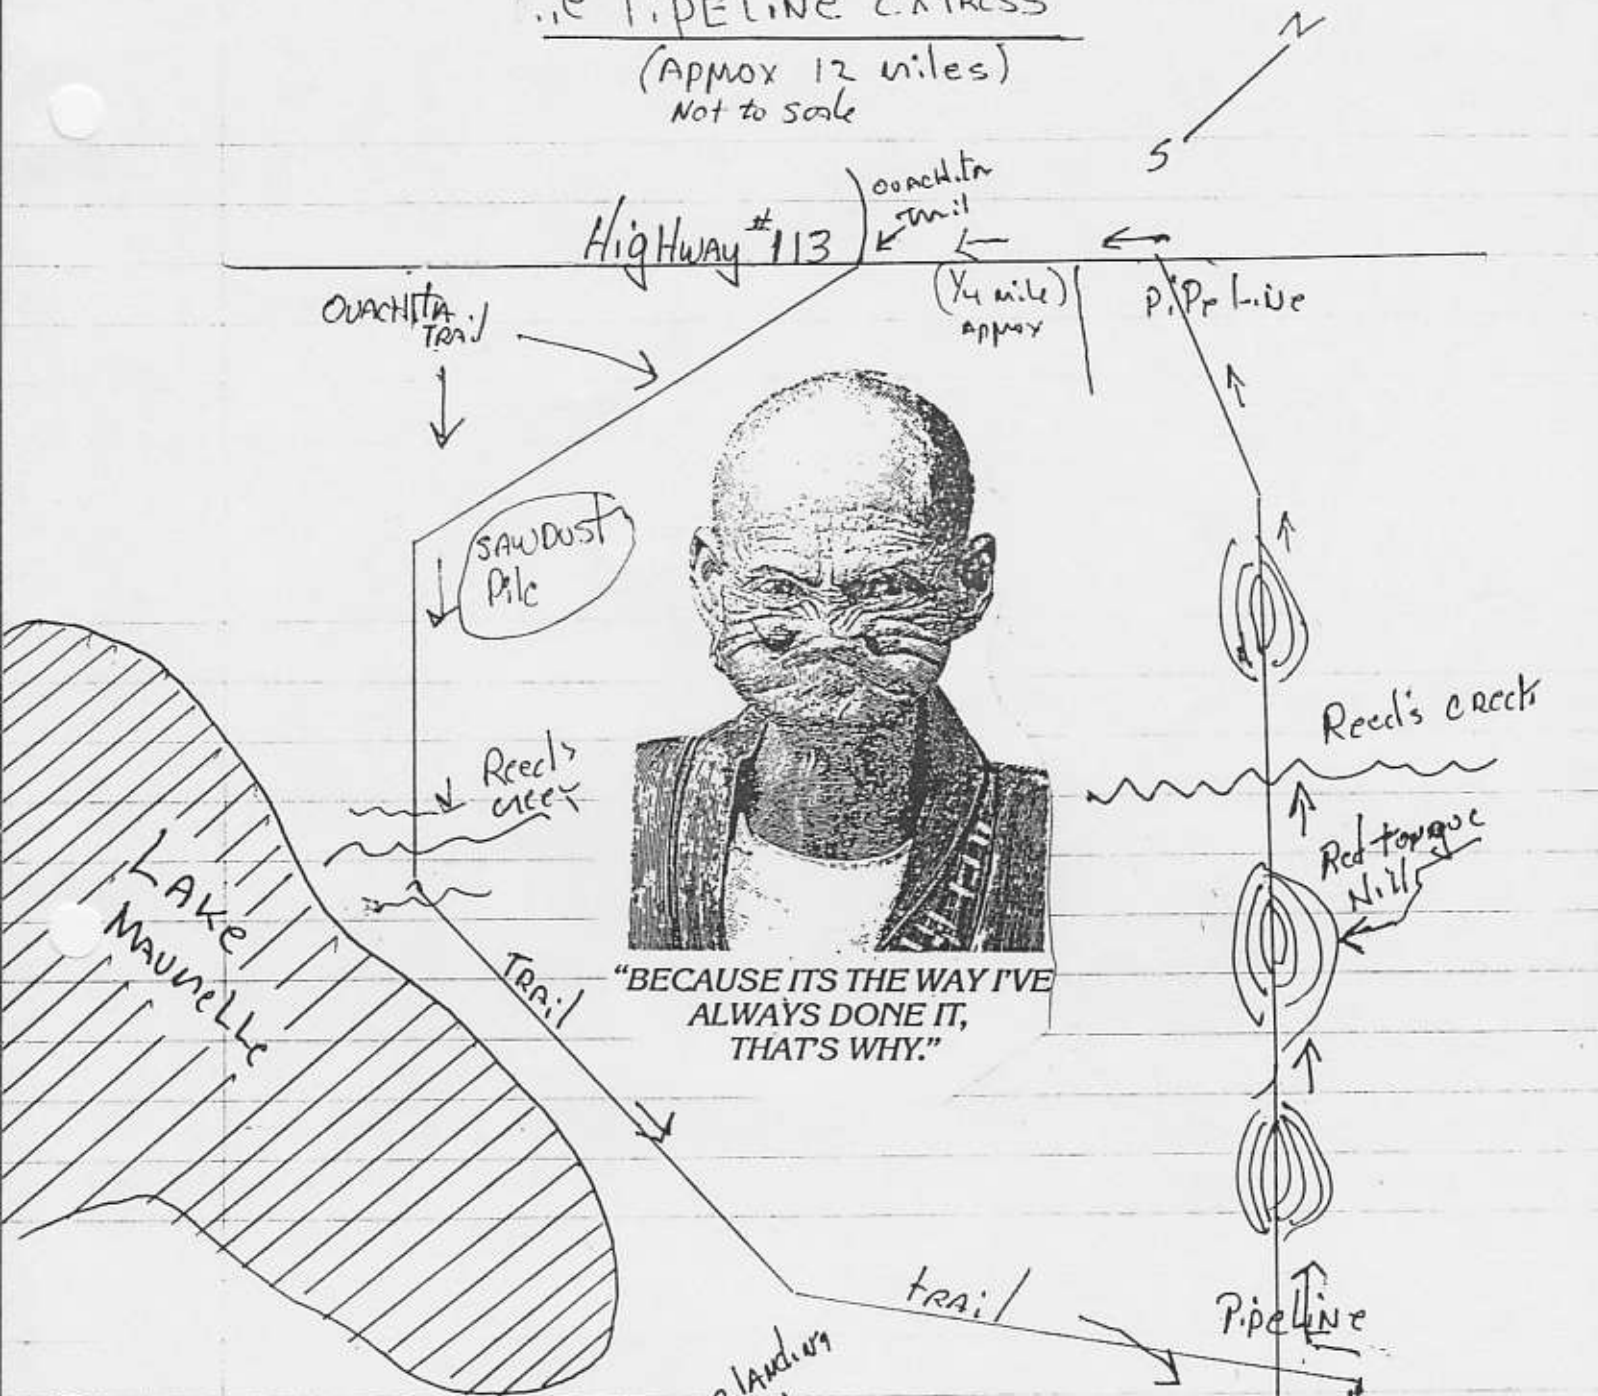 PIPELINE EXPRESS
(APPROX 12 miles)
Not to Scale
N
S
OUACHITA
Trail
HigHway #113
(1/4 mile)
Approx
PiPeLiNe
OUACHITA
TRAil
SAWDUST
Pile
Reed's
creek
Reed's creek
Red tongue
Hill
LAKE
MAUMELLE
TRAil
"BECAUSE ITS THE WAY I'VE
ALWAYS DONE IT,
THAT'S WHY."
tRAil
PipeLiNe
landing